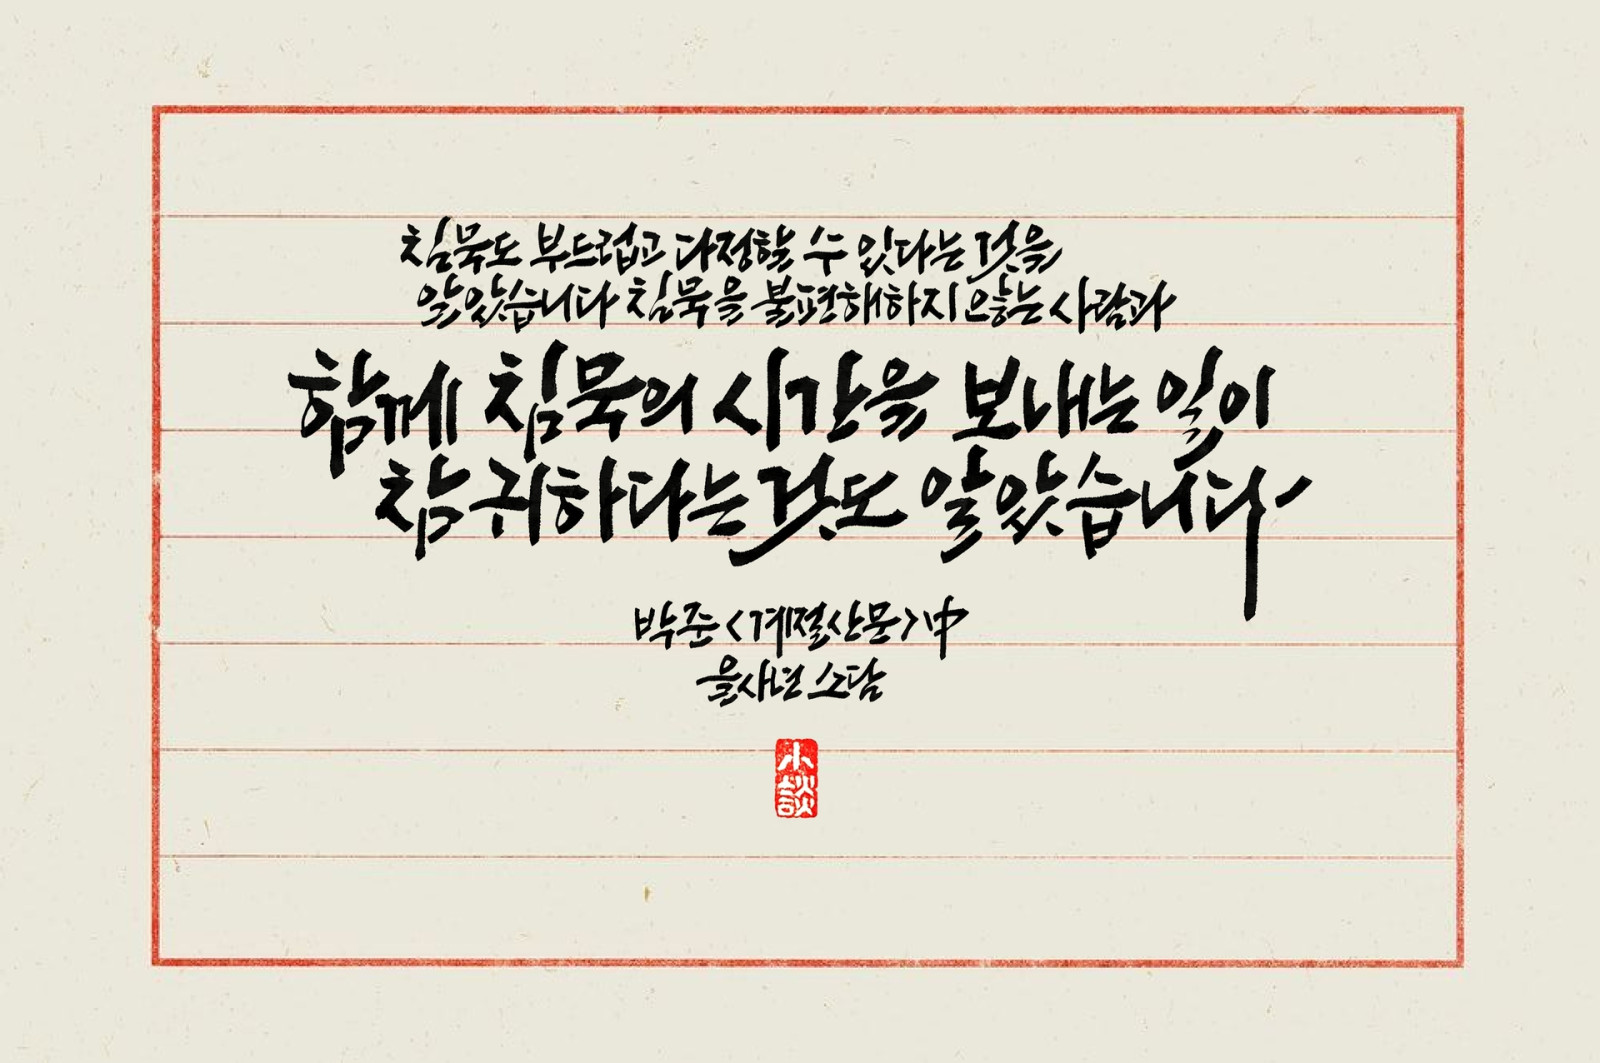 침묵도 부드럽고 다정할 수 있다는 것을
알았습니다 침묵을 불편해하지 않는 사람과
함께 침묵의 시간을 보내는 일이
참 귀하다는 것도 알았습니다
박준 <계절산문> 中
을사년 소담
小談